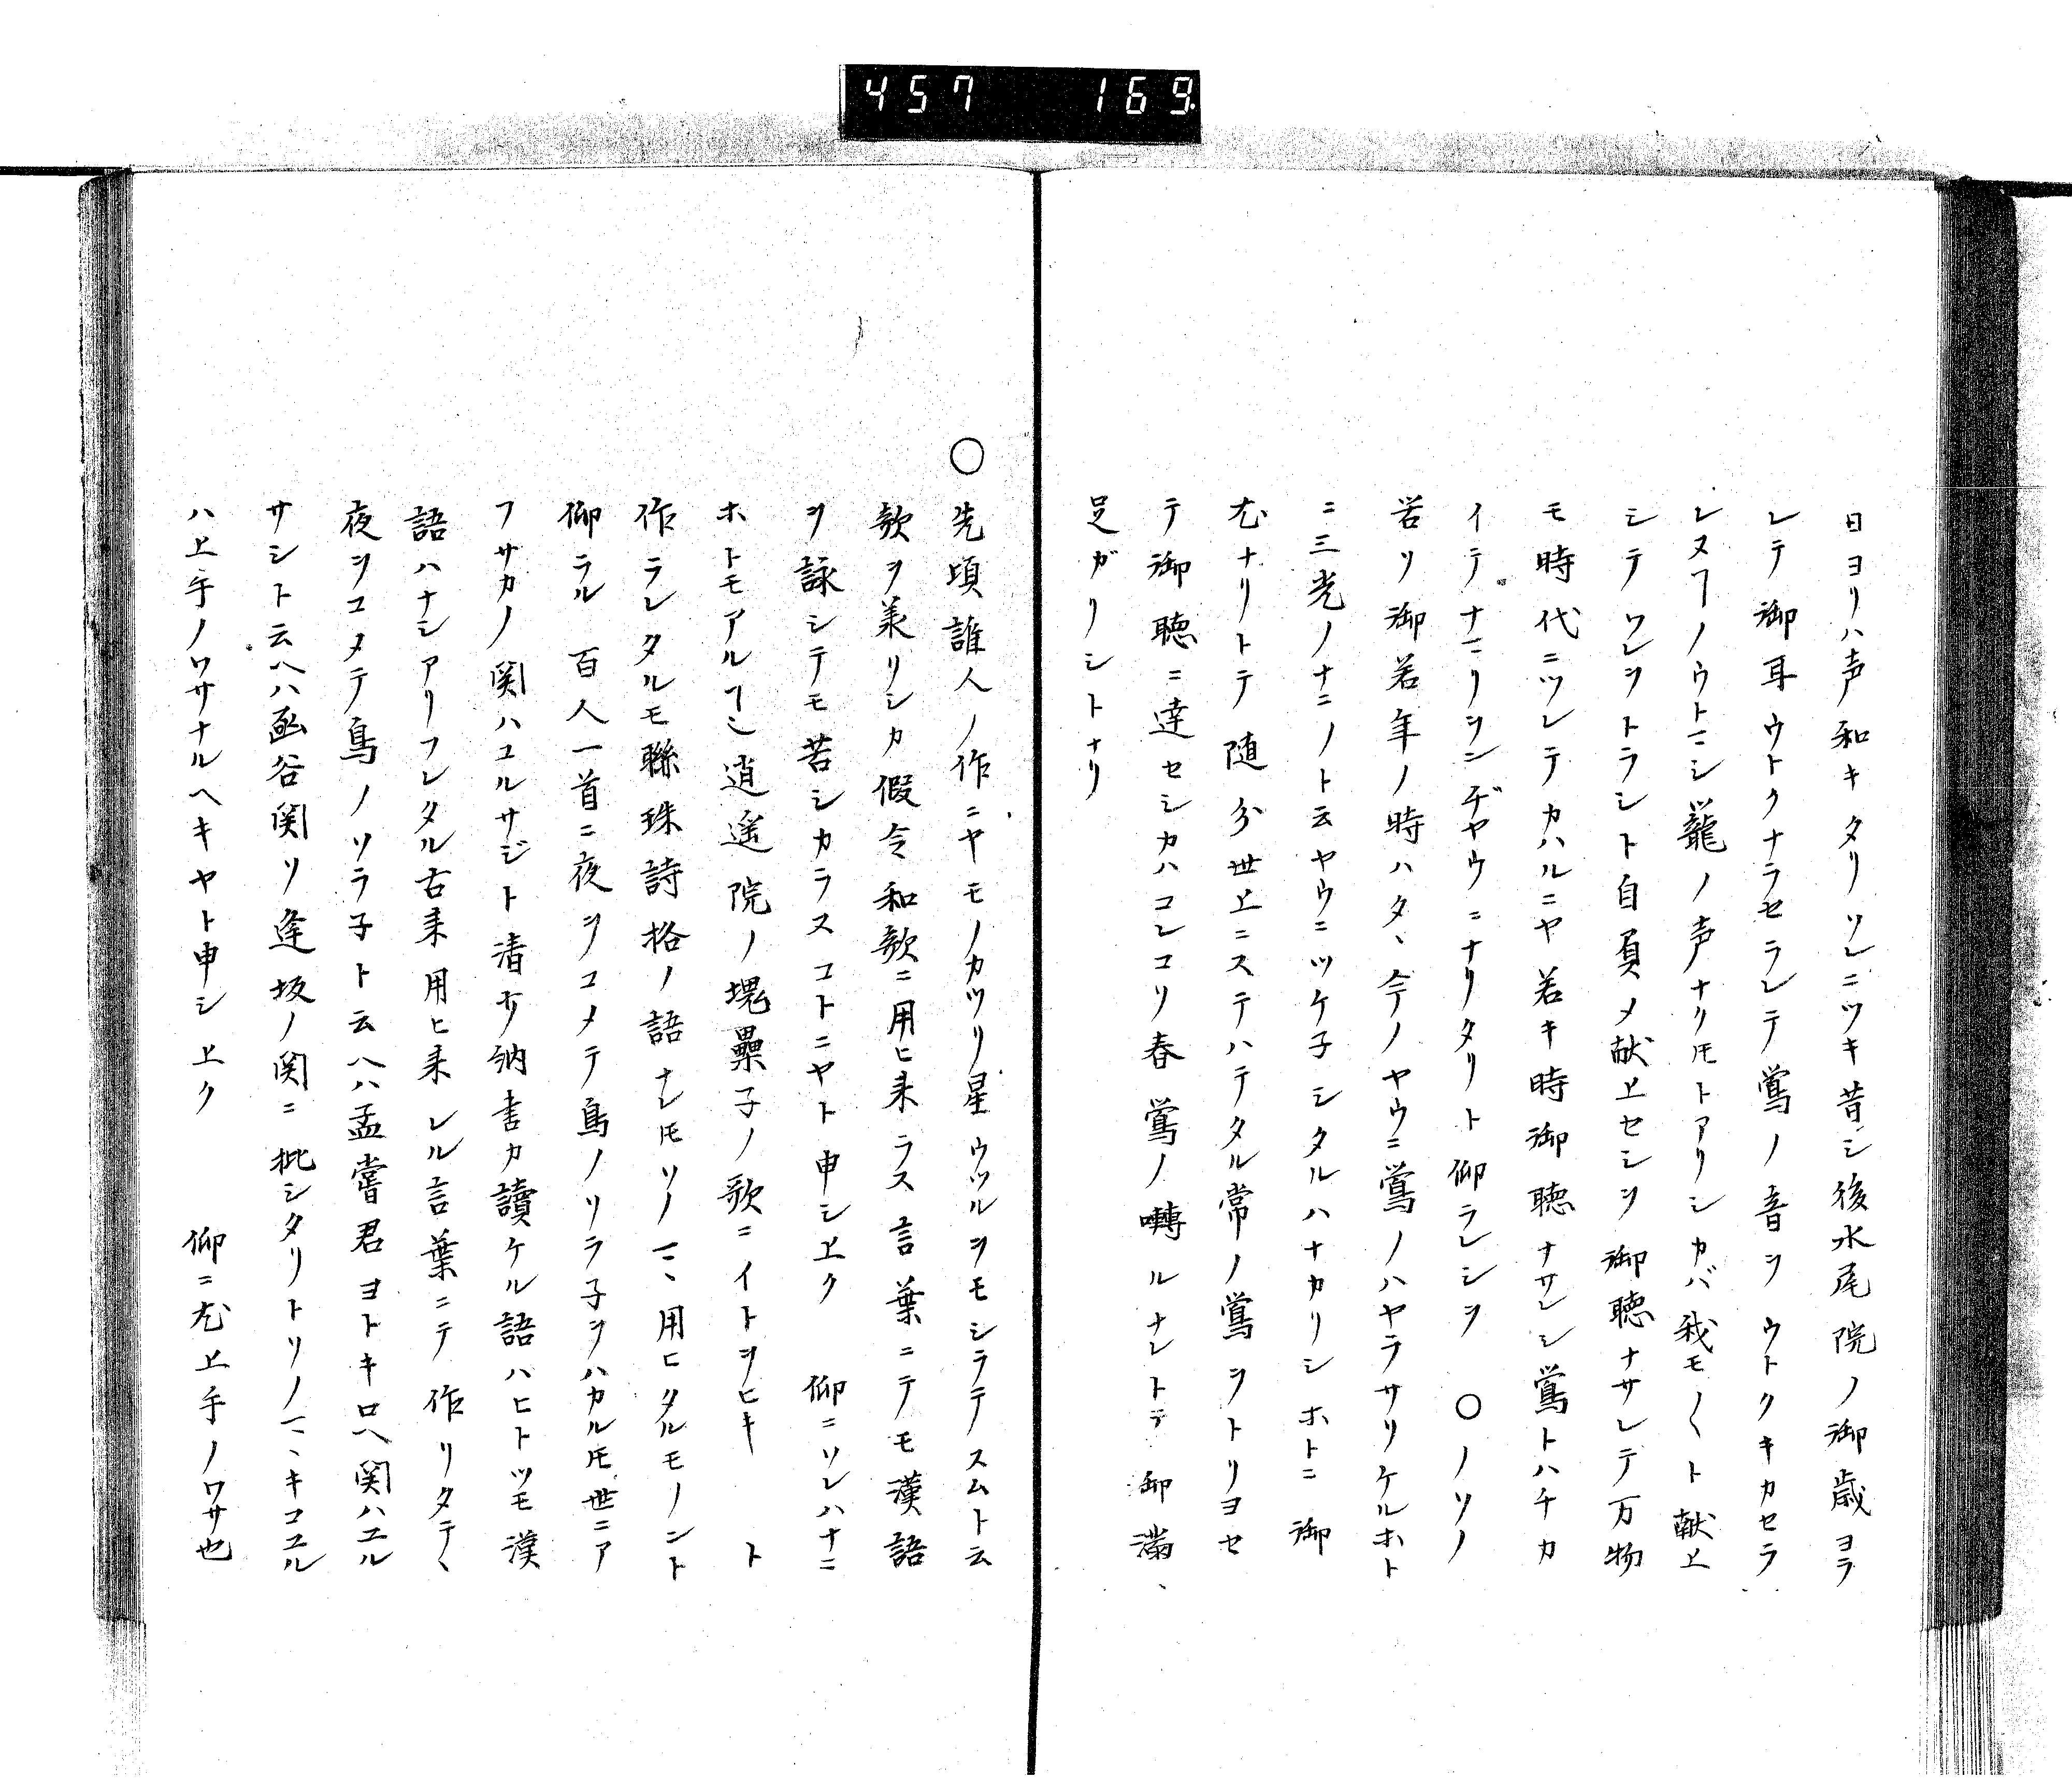 457 169
日ヨリハ声和キタリソレニツキ昔シ後水尾院ノ御歳ヨラ
レテ御耳ウトクナラセラレテ鶯ノ音ヲウトクキカセラ
レヌヿノウトマシ籠ノ声ナク𪜈トアリシカバ我モ〱ト献上
シテワレヲトラシト自負メ献上セシヲ御聴ナサレテ万物
モ時代ニツレテカハルニヤ若キ時御聴ナサレシ鶯トハチカ
イテナマリヲンヂヤウニナリタリト仰ラレシヲ ○ノソノ
若リ御若年ノ時ハタヽ今ノヤウニ鶯ノハヤラサリケルホト
ニ三光ノナニノト云ヤウニツケ子シタルハナカリシホトニ御
尤ナリトテ随分世上ニステハテタル常ノ鶯ヲトリヨセ
テ御聴ニ達セシカハコレコソ春鶯ノ囀ルナレトテ御満
足ガリシトナリ
○先頃誰人ノ作ニヤモノカツリ星ウツルヲモシラテスムト云
歌ヲ承リシカ假令和歌ニ用ヒ来ラス言葉ニテモ漢語
ヲ詠シテモ苦シカラスコトニヤト申シ上ク 仰ニソレハナニ
ホトモアルヿシ逍遥院ノ塊壘子ノ歌ニイトヲヒキ ト
作ラレタルモ聯珠詩格ノ語ナレ𪜈ソノマヽ用ヒタルモノント
仰ラル 百人一首ニ夜ヲコメテ鳥ノソラ子ヲハカル𪜈世ニア
フサカノ関ハユルサジト清少納言カ讀ケル語ハヒトツモ漢
語ハナシアリフレタル古来用ヒ来レル言葉ニテ作リタテヽ
夜ヲコメテ鳥ノソラ子ト云ヘハ孟嘗君ヨトキロヘ関ハユル
サシト云ヘハ函谷関ソ逢坂ノ関ニ批シタリトソノマヽキコユル
ハ上手ノワサナルヘキヤト申シ上ク 仰ニ尤上手ノワサ也